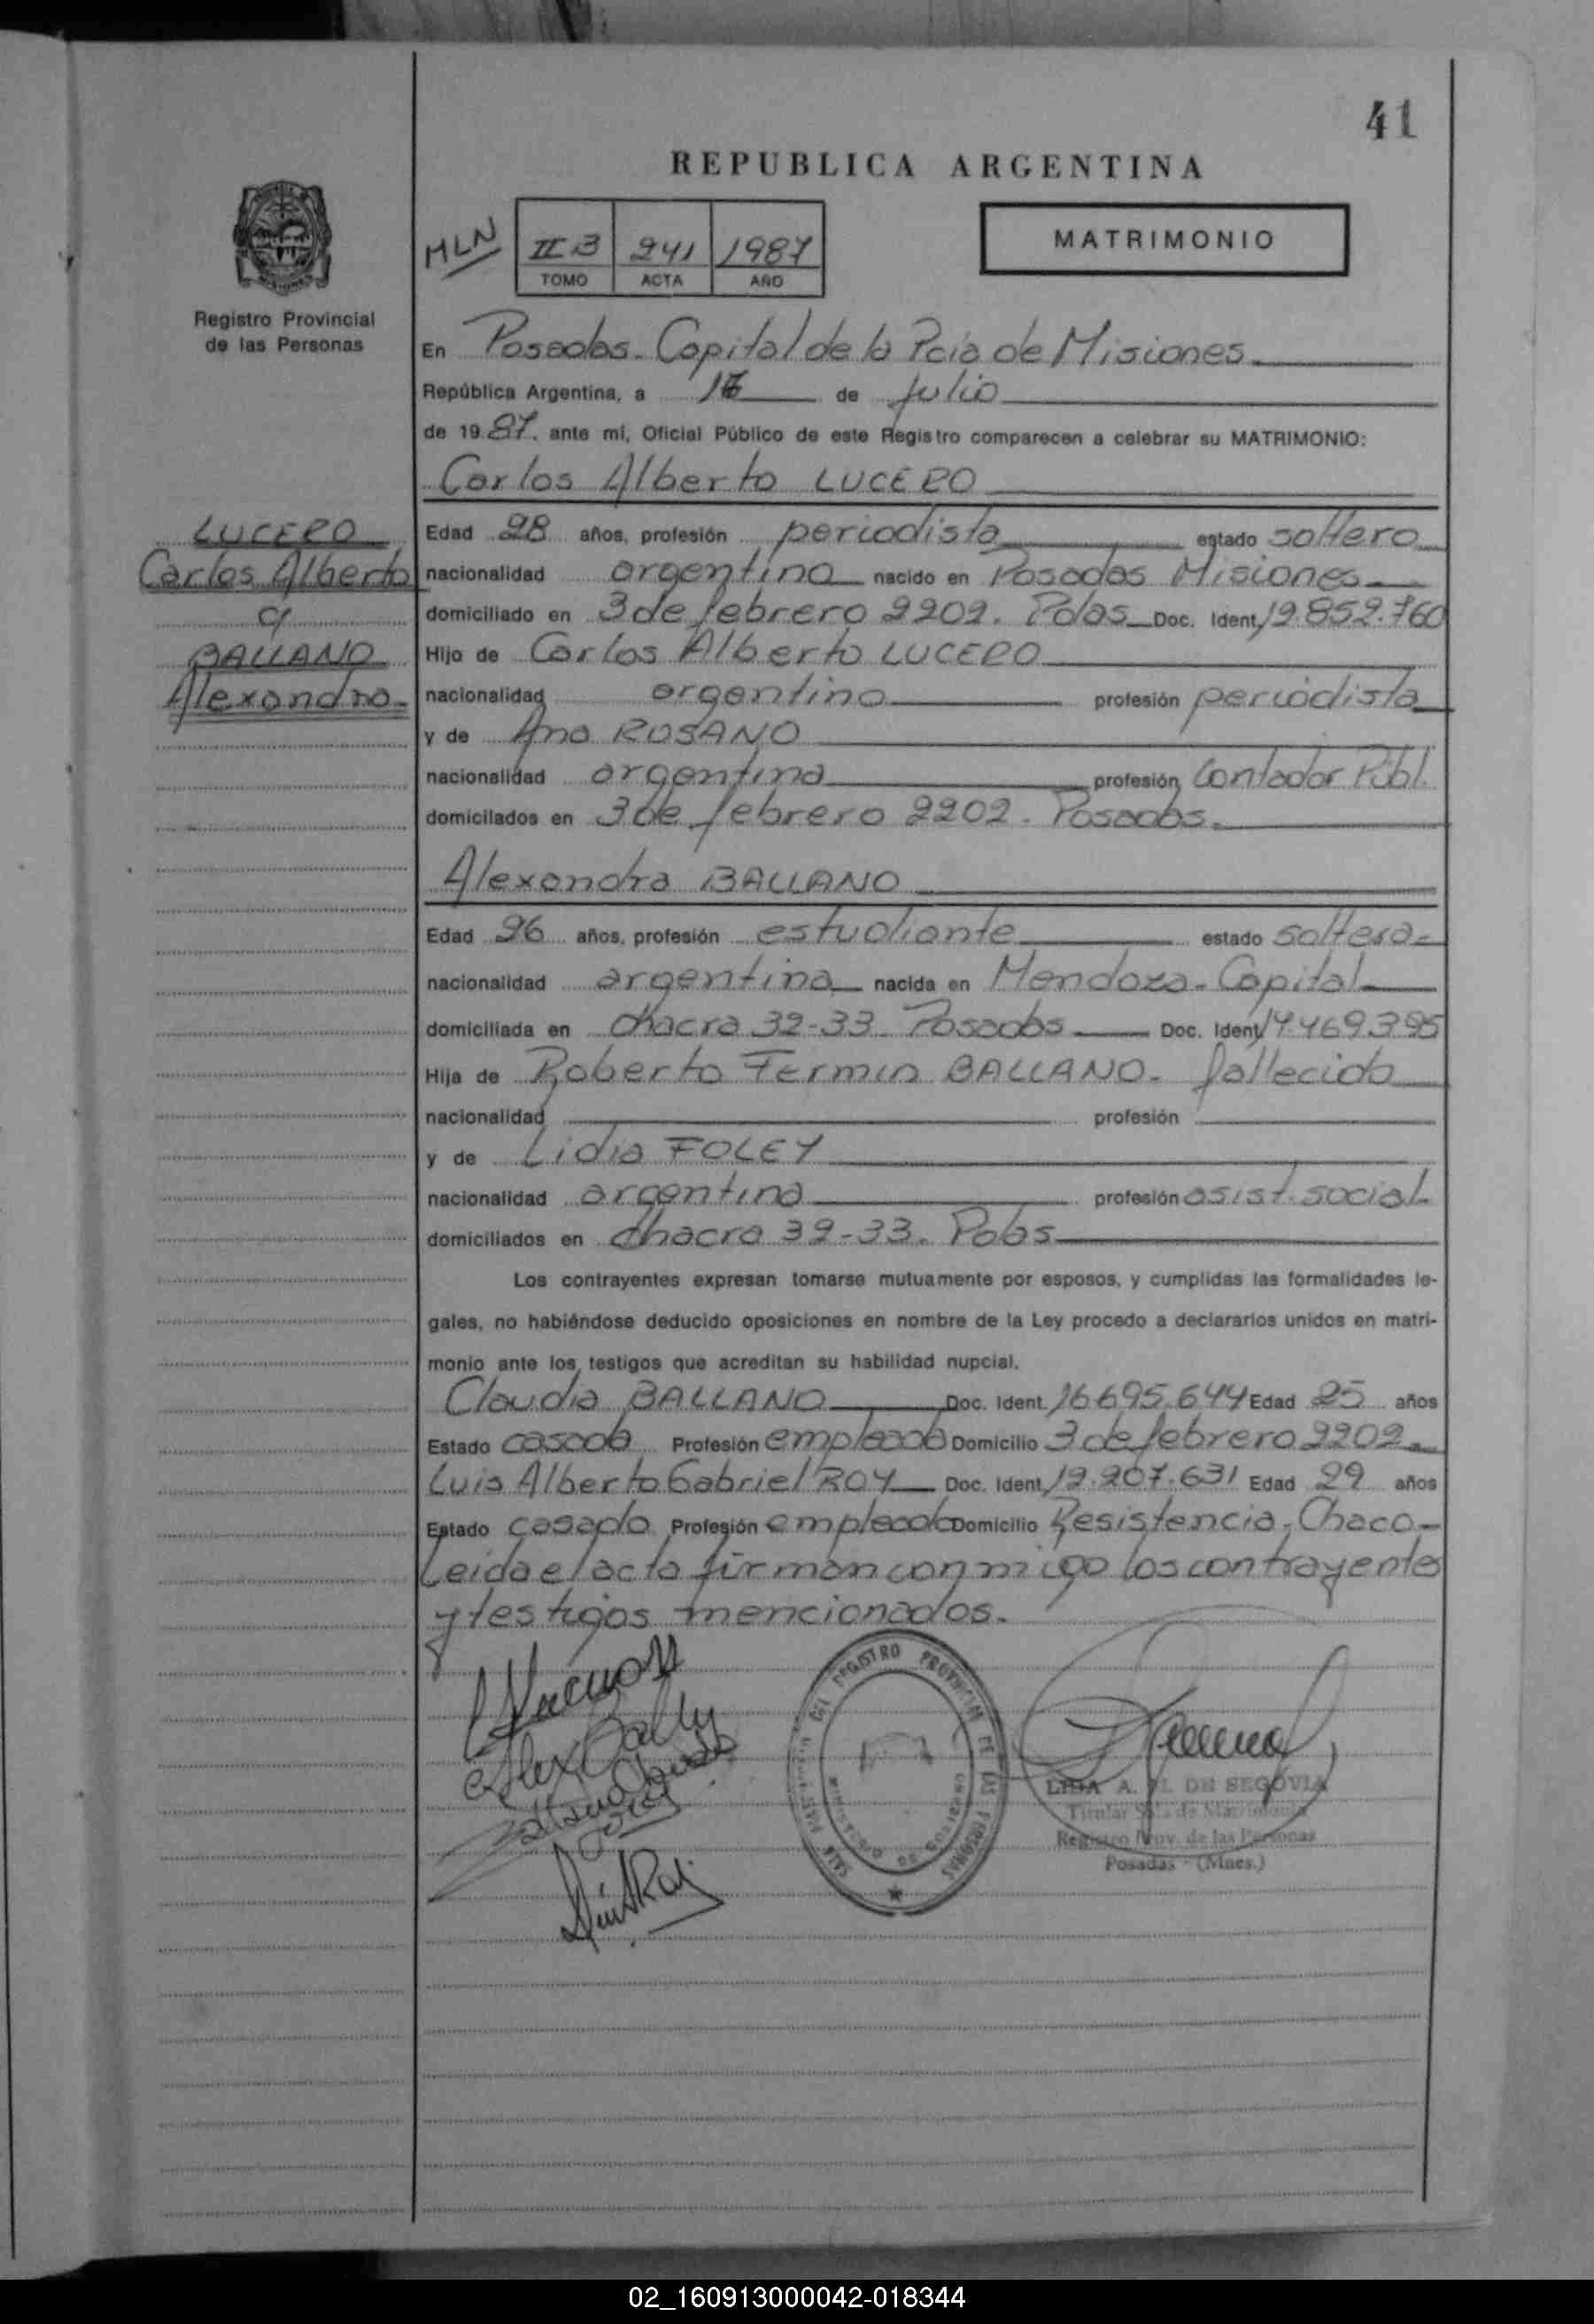 41
REPUBLICA ARGENTINA
MLN
II B 241 1987
TOMO ACTA AÑO
MATRIMONIO
Registro Provincial
de las Personas
En Posadas. Capital de la Pcia de Misiones
República Argentina, a de Julio
de 1987. ante mi, Oficial Público de este Registro comparecen a celebrar su MATRIMONIO:
Carlos Alberto LUCERO
LUCERO
Carlos Alberto
c/
BALLANO
Alexandra
Edad 28 años, profesión periodista estado soltero
nacionalidad argentina nacido en Posadas Misiones
domiciliado en 3 de febrero 2202. Pdas Doc. Ident. 12.852.760
Hijo de Carlos Alberto LUCERO
nacionalidad argentino profesión periodista
y de Ana ROSANO
nacionalidad argentina profesión Contador Públ.
domicilados en 3 de febrero 2202. Posadas.
Alexandra BALLANO
Edad 26 años, profesión estudiante estado soltera
nacionalidad argentina nacida en Mendoza. Capital
domiciliada en chacra 32-33 Posadas Doc. Ident. 14.469.395
Hija de Roberto Fermin BALLANO. fallecido
nacionalidad profesión
y de Lidia FOLEY
nacionalidad argentina profesión asist. social
domiciliados en chacra 32-33. Pdas
Los contrayentes expresan tomarse mutuamente por esposos, y cumplidas las formalidades le-
gales, no habiéndose deducido oposiciones en nombre de la Ley procedo a declararlos unidos en matri-
monio ante los testigos que acreditan su habilidad nupcial.
Claudia BALLANO Doc. Ident. 16.695.644 Edad 25 años
Estado casada Profesión empleada Domicilio 3 de febrero 2202
Luis Alberto Gabriel ROY Doc. Ident. 12.207.631 Edad 29 años
Estado casado Profesión empleado Domicilio Resistencia, Chaco
Leida el acta firman conmigo los contrayentes
y testigos mencionados.
REGISTRO PROVINCIAL DE LAS PERSONAS
LIDIA A. DE SEGOVIA
Titular Sala de Matrimonio
Registro Prov. de las Personas
Posadas - (Mnes.)
02_160913000042-018344